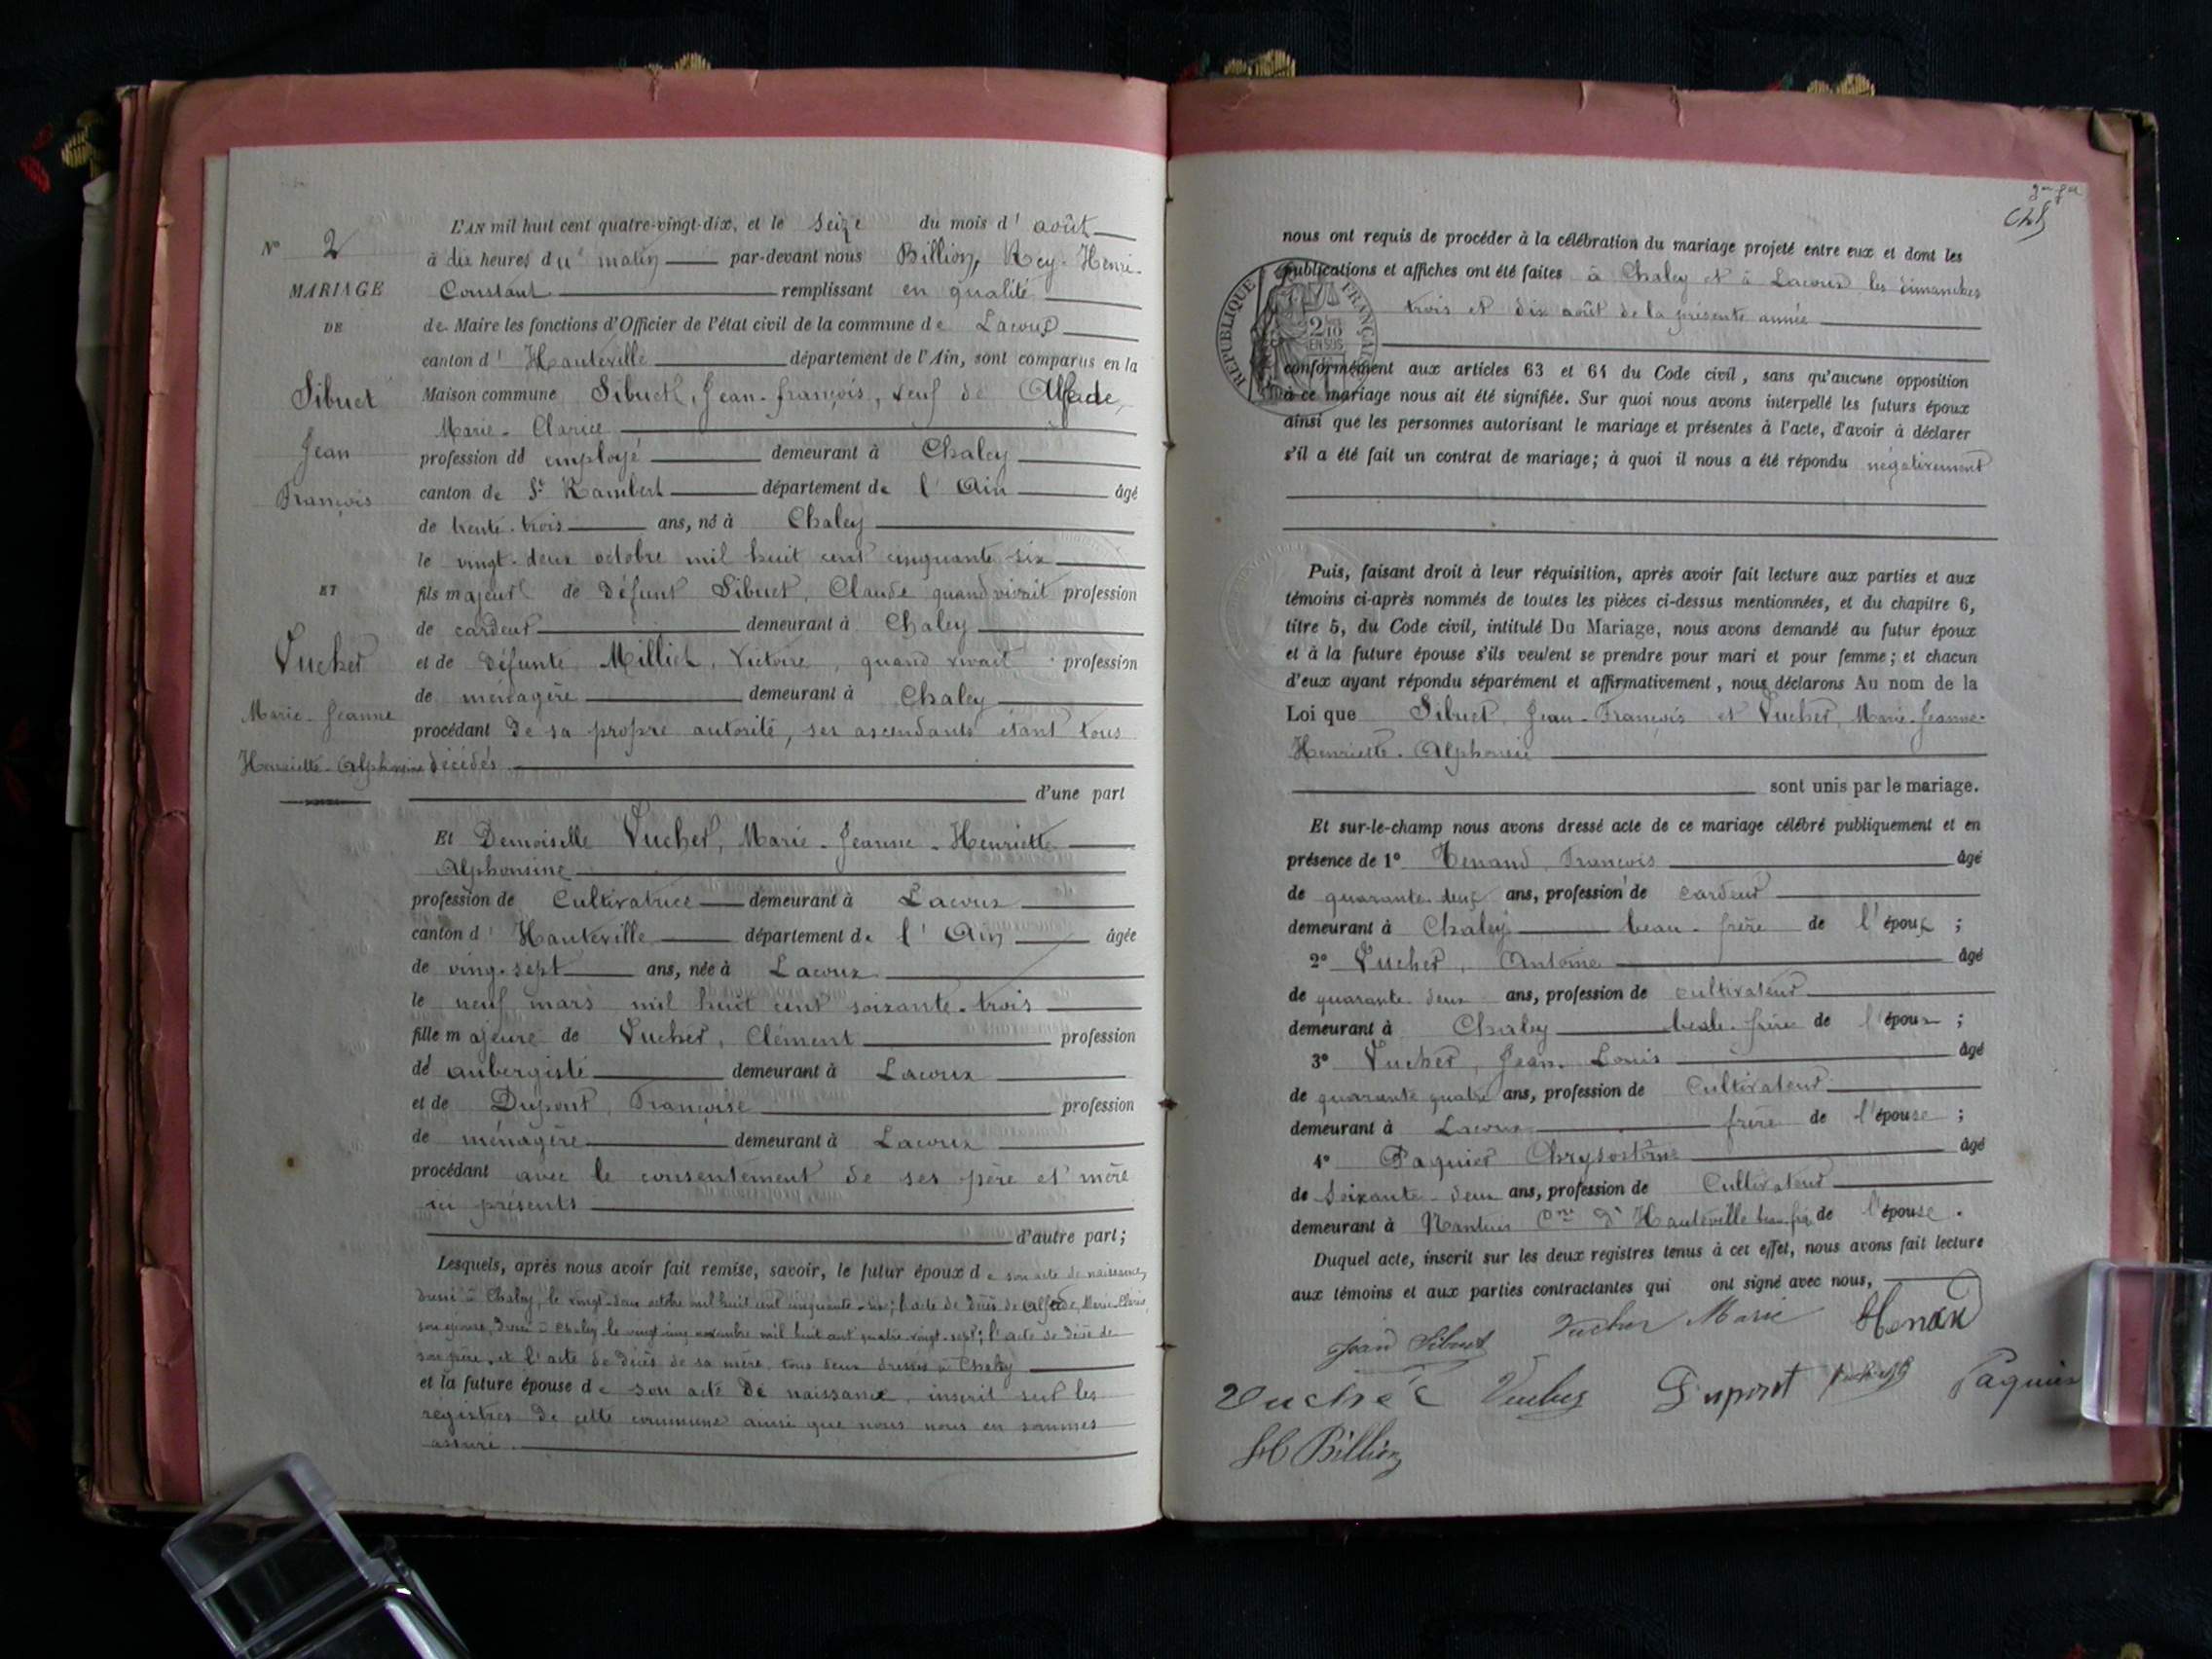 L'AN mil huit cent quatre-vingt-dix, et le seize du mois d' août
N° 2
à dix heures du matin par-devant nous Billion, Rey-Henri-
MARIAGE
Constant remplissant en qualité
DE
de Maire les fonctions d'Officier de l'état civil de la commune de Lacoux
canton d' Hauteville département de l'Ain, sont comparus en la
Sibuet
Maison commune Sibuet, Jean-françois, veuf de Alfade,
Marie-Clarice
Jean
profession d' employé demeurant à Chaley
François
canton de St Rambert département de l'Ain âgé
de trente-trois ans, né à Chaley
le vingt-deux octobre mil huit cent cinquante-six
ET
fils majeur de défunt Sibuet, Claude quand vivait profession
de cardeur demeurant à Chaley
Vuchet
et de défunte Milliet, Victoire, quand vivait profession
de ménagère demeurant à Chaley
Marie-Jeanne
procédant de sa propre autorité, ses ascendants étant tous
Henriette-Alphonsine
décédés
d'une part
Et Demoiselle Vuchet, Marie-Jeanne-Henriette
Alphonsine
profession de Cultivatrice demeurant à Lacoux
canton d' Hauteville département de l'Ain âgée
de ving-sept ans, née à Lacoux
le neuf mars mil huit cent soixante-trois
fille majeure de Vuchet, Clément profession
de aubergiste demeurant à Lacoux
et de Dupont, Françoise profession
de ménagère demeurant à Lacoux
procédant avec le consentement de ses père et mère
ici présents
d'autre part;
Lesquels, après nous avoir fait remise, savoir, le futur époux de son acte de naissance,
dressé à Chaley, le vingt-deux octobre mil huit cent cinquante-six; l'acte de décès de Alfade, Marie-Clarice,
son épouse, dressé à Chaley le vingt cinq novembre mil huit cent quatre-vingt-sept; l'acte de décès de
son père, et l'acte de décès de sa mère, tous deux dressés à Chaley
et la future épouse de son acte de naissance, inscrit sur les
registres de cette commune ainsi que nous nous en sommes
assuré.
nous ont requis de procéder à la célébration du mariage projeté entre eux et dont les
publications et affiches ont été faites à Chaley et à Lacoux les dimanches
trois et dix août de la présente année
REPUBLIQUE FRANÇAISE
conformément aux articles 63 et 64 du Code civil, sans qu'aucune opposition
à ce mariage nous ait été signifiée. Sur quoi nous avons interpellé les futurs époux
ainsi que les personnes autorisant le mariage et présentes à l'acte, d'avoir à déclarer
s'il a été fait un contrat de mariage; à quoi il nous a été répondu négativement
Puis, faisant droit à leur réquisition, après avoir fait lecture aux parties et aux
témoins ci-après nommés de toutes les pièces ci-dessus mentionnées, et du chapitre 6,
titre 5, du Code civil, intitulé Du Mariage, nous avons demandé au futur époux
et à la future épouse s'ils veulent se prendre pour mari et pour femme; et chacun
d'eux ayant répondu séparément et affirmativement, nous déclarons Au nom de la
Loi que Sibuet, Jean-François et Vuchet, Marie-Jeanne-
Henriette-Alphonsine
sont unis par le mariage.
Et sur-le-champ nous avons dressé acte de ce mariage célébré publiquement et en
présence de 1° François âgé
de quarante-deux ans, profession de cardeur
demeurant à Chaley beau-frère de l'époux;
2° Vuchet, Antoine âgé
de quarante-deux ans, profession de cultivateur
demeurant à Chaley beau-frère de l'époux;
3° Vuchet, Jean-Louis âgé
de quarante quatre ans, profession de Cultivateur
demeurant à Lacoux frère de l'épouse;
4° Paquier Chrysostôme âgé
de soixante-deux ans, profession de Cultivateur
demeurant à Nantuy d'Hauteville beau-frè de l'épouse.
Duquel acte, inscrit sur les deux registres tenus à cet effet, nous avons fait lecture
aux témoins et aux parties contractantes qui ont signé avec nous,
Jean Sibuet Vuchet Marie
Vuchet Vuchet Dupont Paquier
H Billion